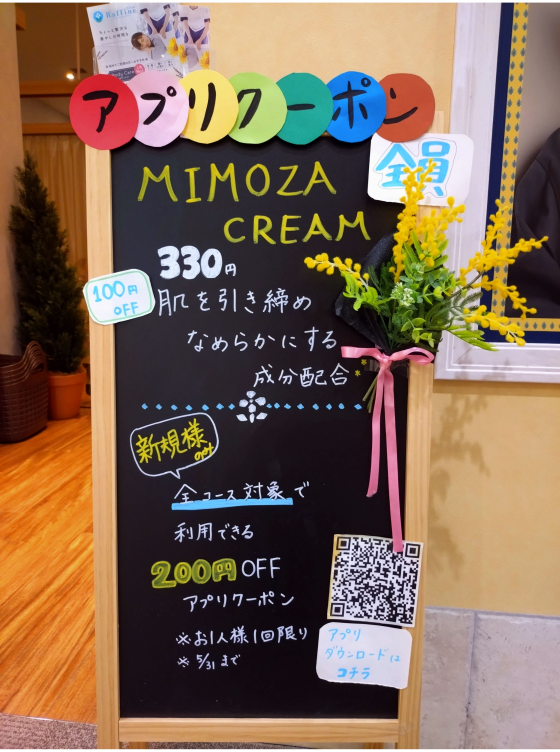 Raffine
アプリクーポン
全員
MIMOZA
CREAM
330円
100円
OFF
肌を引き締め
なめらかにする
成分配合
新規様
全コース対象で
利用できる
200円OFF
アプリクーポン
※お1人様1回限り
※5/31まで
アプリ
ダウンロードは
コチラ